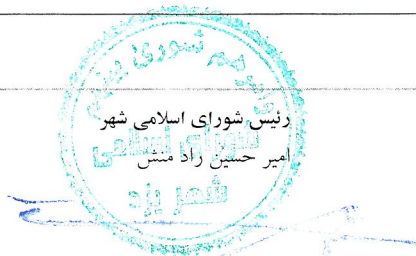 رئیس شورای اسلامی شهر
امیر حسین راد منش
شورای اسلامی
شهر یزد